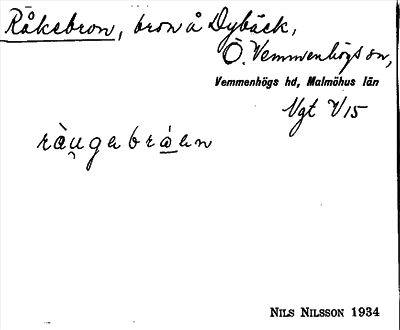 Råksbron, bron å Dybäck,
Ö. Vemmenhögs sn,
Vemmenhögs hd, Malmöhus län
Vgt V 15
ràu̯gabrå̀an
NILS NILSSON 1934